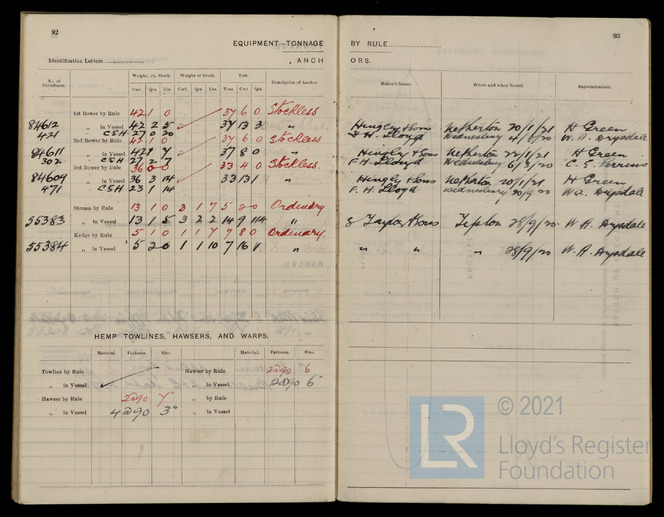 92
EQUIPMENT TONNAGE
Identification Letters
ANCH
No. of Certificate.
Weight, ex. Stock.
Weight of Stock.
Test.
Description of Anchor.
Cwt. Qrs. Lbs. Cwt. Qrs. Lbs. Tons Cwt. Qrs.
1st Bower by Rule 42 1 0 37 6 0 Stockless
84612 „ in Vessel 42 2 5 37 13 3 „
421 CSH 27 0 20
2nd Bower by Rule 42 1 0 37 6 0 Stockless
84611 „ in Vessel 37 8 0 „
302 CSH 27 2 7
3rd Bower by Rule 36 0 0 33 4 0 Stockless
84609 „ in Vessel 36 3 14 33 13 1 „
471 CSH 23 1 14
Stream by Rule 13 1 0 3 1 7 5 2 0 Ordinary
55383 „ in Vessel 13 1 5 3 2 2 14 9 „
Kedge by Rule 5 1 0 1 1 7 7 8 0 Ordinary
55384 „ in Vessel 5 2 0 1 1 10 7 16 „
HEMP TOWLINES, HAWSERS, AND WARPS.
Material. Fathoms. Size. Material. Fathoms. Size.
Towline by Rule Hawser by Rule 2@90 6
„ in Vessel „ in Vessel 2@90 6"
Hawser by Rule 2@90 7" „ by Rule
„ in Vessel 4@90 3" „ in Vessel
93
BY RULE
ORS.
Maker's Name.
Where and when Tested.
Superintendent.
Hingley & Sons Netherton 20/1/21 H Green
F. H. Lloyd Wednesbury W A. Drysdale
Hingley & Sons Netherton 22/1/21 H Green
F H. Lloyd Wednesbury C. E. Perrins
Hingley & Sons Netherton 20/1/21 H Green
F. H. Lloyd Wednesbury W. A. Drysdale
Taylor & Sons Tipton 28/9/20 W. A. Drysdale
„ „ „ 28/9/20 W. A. Drysdale
© 2021
LR
Lloyd's Register
Foundation